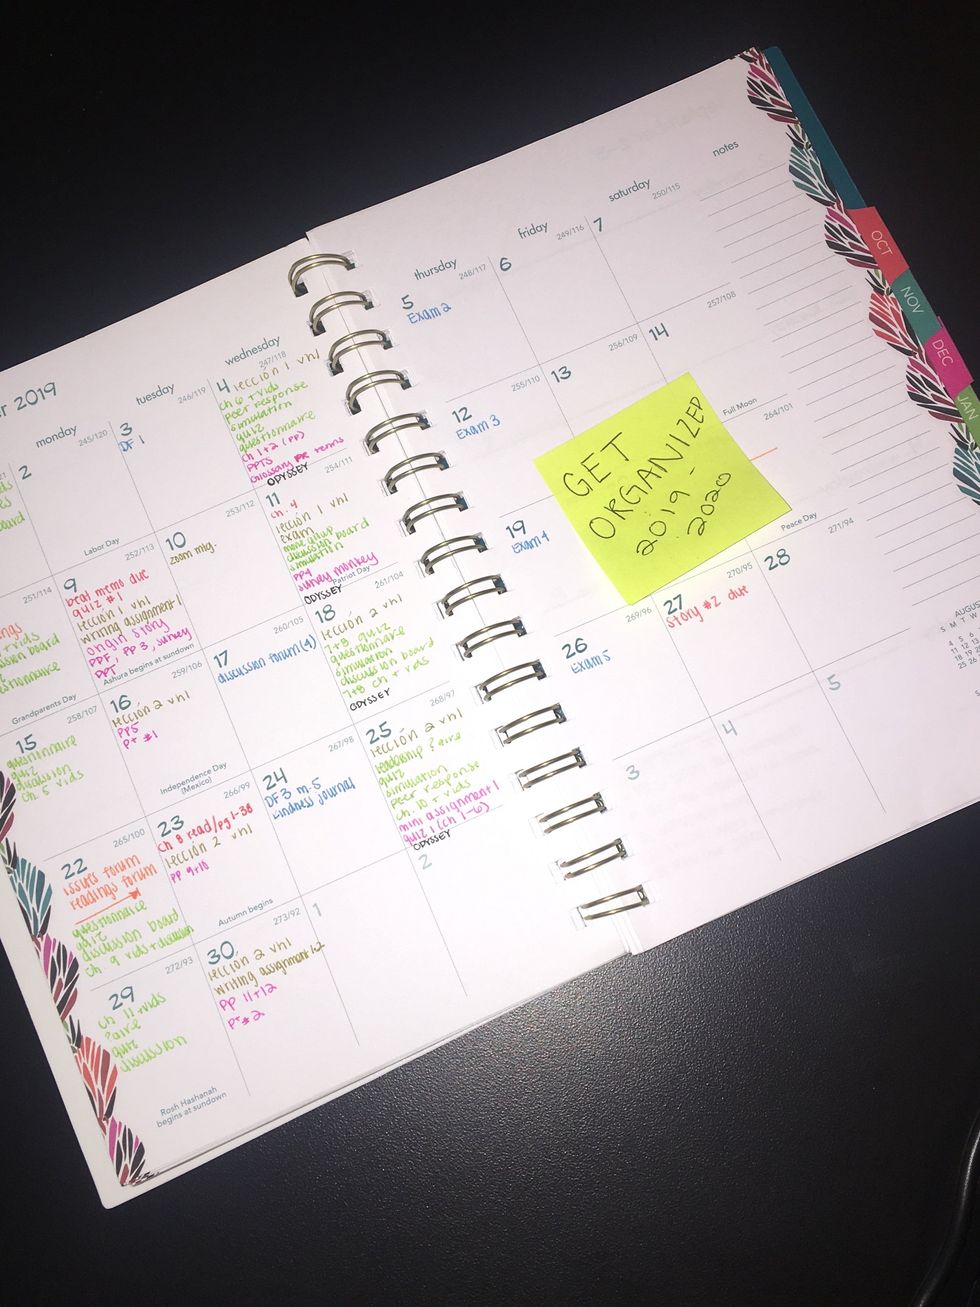 r 2019
monday
tuesday
wednesday
thursday
friday
saturday
notes
2
245/120
Labor Day
3
246/119
DF 1
4
247/118
lección 1 vhl
ch 6 + vids
peer response
simulation
quiz
questionnaire
ch 1+2 (PP)
PPTS
Glossary terms
ODYSSEY
5
248/117
Exam 2
6
249/116
7
250/115
251/114
Grandparents Day
9
252/113
beat memo due
quiz #1
lección 1 vhl
writing assignment 1
origin story
PPF, PP 3, survey
PPT
Ashura begins at sundown
10
253/112
zoom mtg.
11
254/111
ch. 4
lección 1 vhl
exam
discussion board
simulation
PP4
survey monkey
Patriot Day
ODYSSEY
12
255/110
Exam 3
13
256/109
14
257/108
Full Moon
15
258/107
questionnaire
quiz
discussion
ch. 5 vids
16
259/106
lección 2 vhl
PP5
P+ #1
Independence Day
(Mexico)
17
260/105
discussion forum (4)
18
261/104
lección 2 vhl
7+8 quiz
questionnaire
simulation
discussion board
7+8 ch + vids
ODYSSEY
19
Exam 4
264/101
Peace Day
GET
ORGANIZED
2019 -
2020
22
265/100
issues forum
readings forum
questionnaire
quiz
discussion board
ch. 9 vids + discussion
23
266/99
ch 8 read/pg 1-38
lección 2 vhl
PP 9+10
Autumn begins
24
267/98
DF3 m.5
kindness journal
25
268/97
lección 2 vhl
leadership ?aire
quiz
simulation
peer response
ch. 10 + vids
mini assignment 1
quiz 1 (ch 1-6)
ODYSSEY
26
269/96
Exam 5
27
270/95
story #2 due
28
271/94
29
272/93
ch 11 + vids
?aire
quiz
discussion
Rosh Hashanah
begins at sundown
30
273/92
lección 2 vhl
writing assignment 1+2
PP 11+12
P+ #2
1
2
3
4
5
OCT
NOV
DEC
JAN
AUGUS
S M T W